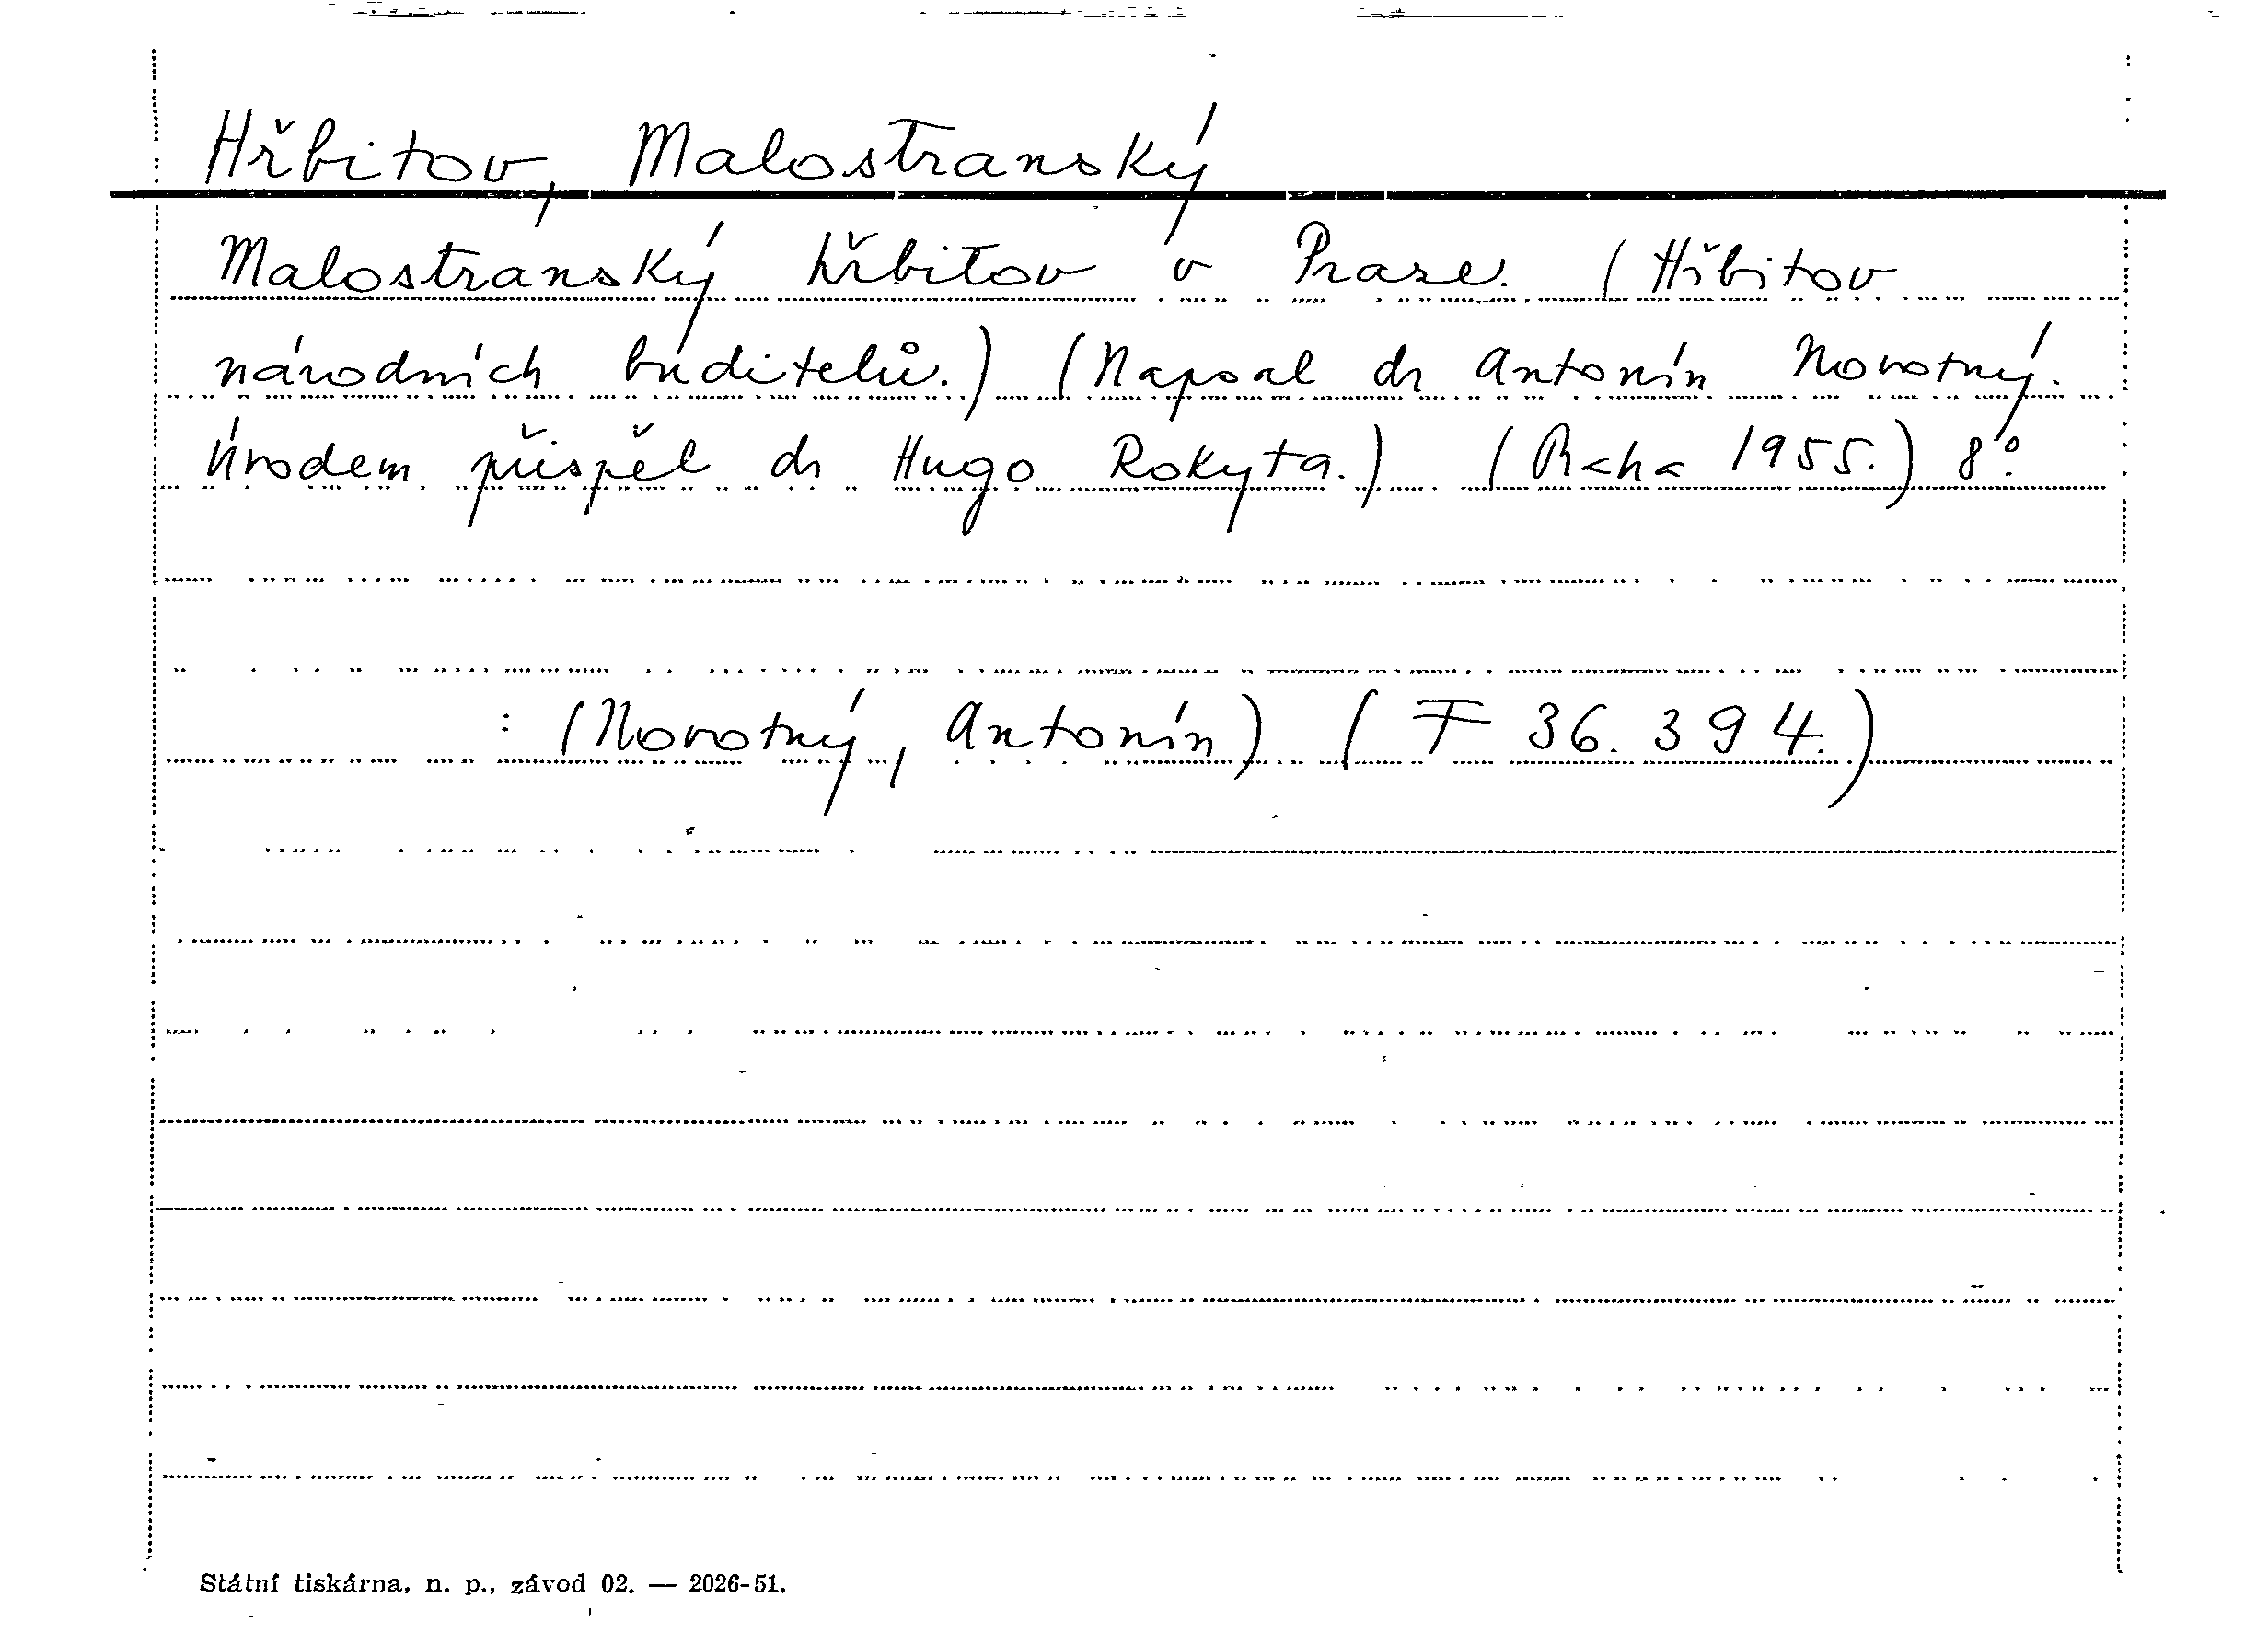 Hřbitov, Malostranský
Malostranský hřbitov v Praze. (Hřbitov
národních buditelů.) (Napsal dr Antonín Novotný.
Úvodem přispěl dr Hugo Rokyta.) (Praha 1955.) 8°.
: (Novotný, Antonín) (F 36.394.)
Státní tiskárna, n. p., závod 02. — 2026-51.